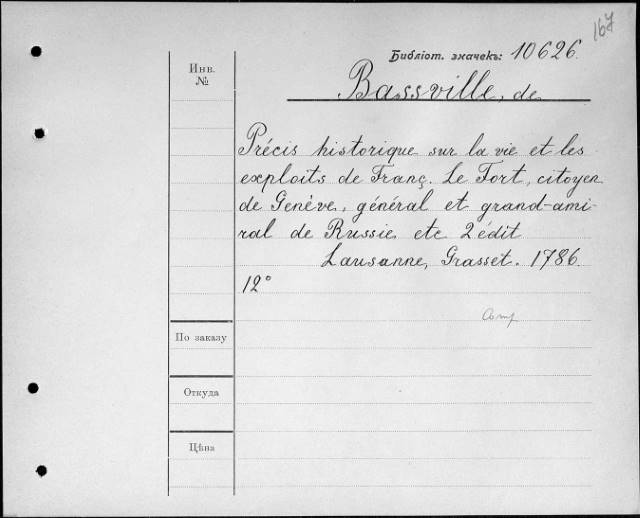 167
Библіот. значекъ: 10626.
Инв.
№
Bassville, de
Précis historique sur la vie et les
exploits de Franç. Le Fort, citoyen
de Genève, général et grand-ami-
ral de Russie etc 2 édit
Lausanne, Grasset. 1786.
12°
По заказу
Откуда
Цѣна